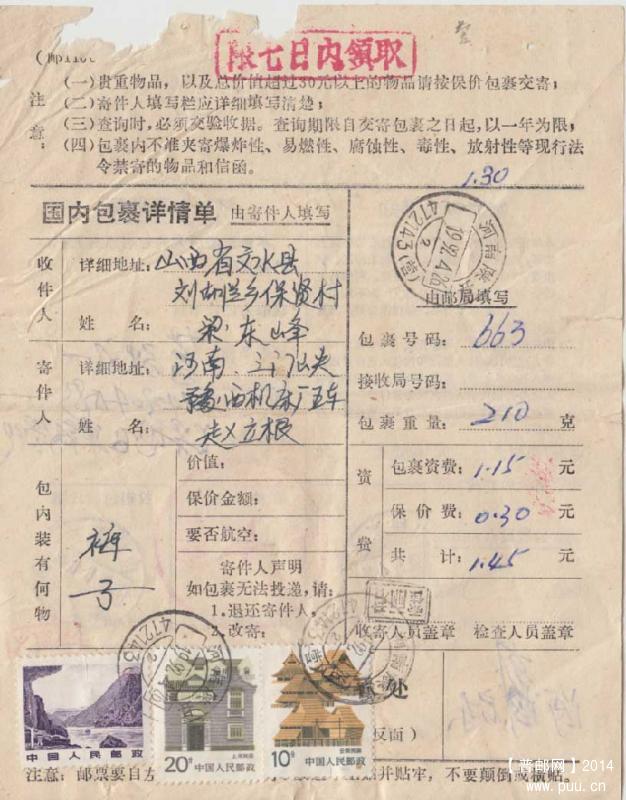 限七日内領取
(一)贵重物品，以及总价值超过30元以上的物品请按保价包裹交寄；
注 (二)寄件人填写栏应详细填写清楚；
意： (三)查询时，必须交验收据。查询期限自交寄包裹之日起，以一年为限；
(四)包裹内不准夹寄爆炸性、易燃性、腐蚀性、毒性、放射性等现行法
令禁寄的物品和信函。
1.30
国内包裹详情单 由寄件人填写
收件人 详细地址：山西省文水县
刘胡兰乡保贤村
姓名：梁东峰
寄件人 详细地址：河南、三门峡
豫西机床厂五车
姓名：赵立根
包内装有何物
裤子
价值：
保价金额：
要否航空：
寄件人声明
如包裹无法投递，请：
1.退还寄件人，
2.改寄：
472143
由邮局填写
包裹号码：663
接收局号码：
包裹重量：210 克
资费
包裹资费：1.15 元
保价费：0.30 元
共计：1.45 元
收寄人员盖章 检查人员盖章
处
反面）
中国人民邮政
20分 中国人民邮政
上海民居
10分 中国人民邮政
云南民居
注意：邮票要自左
并贴牢，不要颠倒或横贴。
【普邮网】2014
www.puu.cn